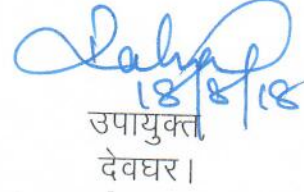 18/8/18
उपायुक्त,
देवघर।